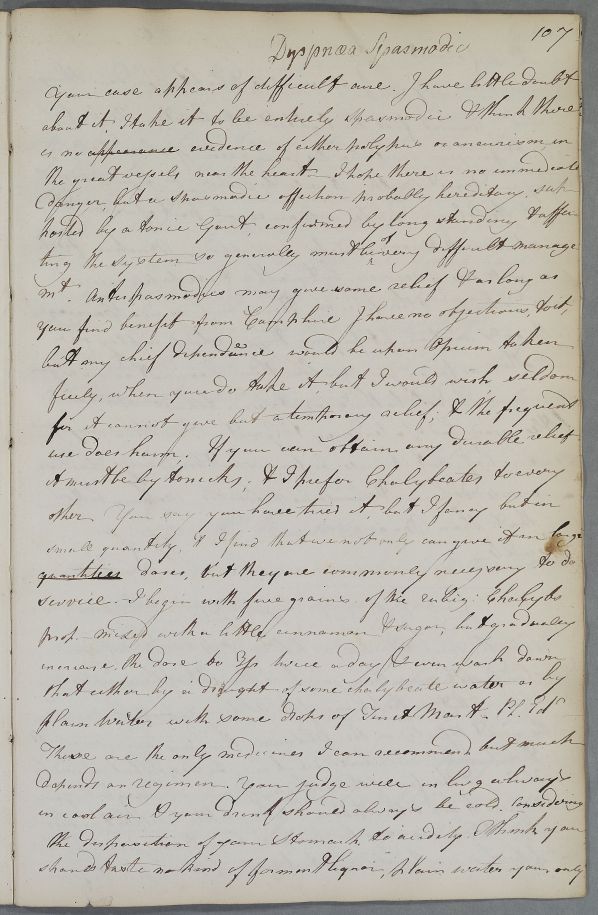 107
Dyspnœa Spasmodic
Your case appears of difficult cure. I have little doubt
about it, I take it to be entirely spasmodic & think there
is no appearance evidence of either polypus or aneurism in
the great vessels near the heart. I hope there is no immediate
danger, but a spasmodic affection probably hereditary, sup
ported by a tonic Gout, confirmed by long standing & affec
ting the system so generally must be of very difficult manage
mt. Antispasmodics may give some relief & as long as
you find benefit from Camphire I have no objections to it,
but my chief dependance would be upon Opium taken
freely, when you do take it, but I would wish seldom
for it cannot give but a temporary relief; & the frequent
use does harm. If you can obtain any durable relief
it must be by tonicks; & I prefer Chalybeates to every
other. You say you have tried it, but I fancy but in
small quantity, & I find that we not only can give it in large
quantities doses, but they are commonly necessary to do
service. I begin with five grains of the rubig: Chalybs
ppt. mixed with a little cinnamon & sugar, but gradually
increase the dose to ʒſs twice a day & even wash down
that either by a draught of some chalybeate water or by
plain water with some drops of Tinct Mart. Ph. Ed
These are the only medicines I can recommend but much
depends on regimen. You judge well in living always
in cool air & your drink should always be cold. Considering
the disposition of your Stomach to acidity I think you
should taste no kind of fermentd liquor, plain water your only